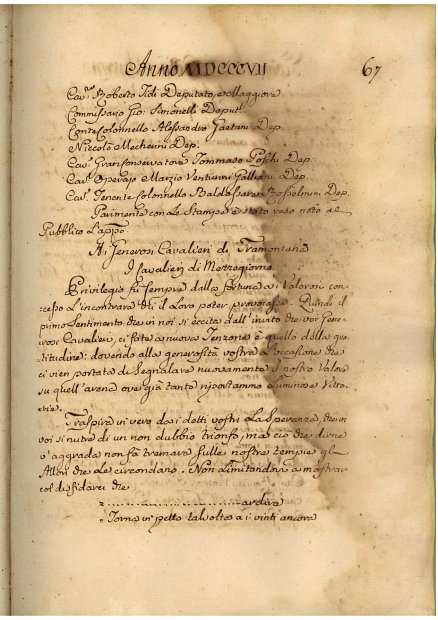 Anno MDCCCVII
67
Cav.r Roberto Tidi Deputato, e
Commissario Gio: Simonelli Deput.
Conte Colonnello Alessandro Gaetani Dep.
Niccola Mecherini Dep.
Cav.r Granconservatore Tommaso Poschi Dep
Cav.r Operajo Marzio Venturini Galliani Dep.
Cav.r Tenente Colonnello Baldassarre Rosselmini Dep.
Parimente con Le Stampe è stato reso noto al
Pubblico L'appo:
Ai Generosi Cavalieri di Tramontana
I Cavalieri di Mezzogiorno.
Privilegio fu sempre dalla fortuna ai Valorosi con-
cesso L'incontrare chi il Loro poter provocasse. Quindi il
primo Sentimento che in noi si eccita dall'invito che voi Gene-
rosi Cavalieri, ci fate a nuova Tenzone è quello della gra-
titudine: dovendo alla generosità vostra L'occasione che
ci vien portata di Segnalare nuovamente il nostro Valore
su quell'arena ove già tante riportammo Luminose Vitto-
rie.
Traspira in vero da i detti vostri La Speranza, che in
voi si nutre di un non dubbio trionfo, ma ciò che a me
v'aggrada non fà tremare sulle nostre tempie gl'
Allori che Le circondano. Non Limitandovi a mostrar
col disfidarci che
ardire
Torna in petto talvolta a i vinti ancora